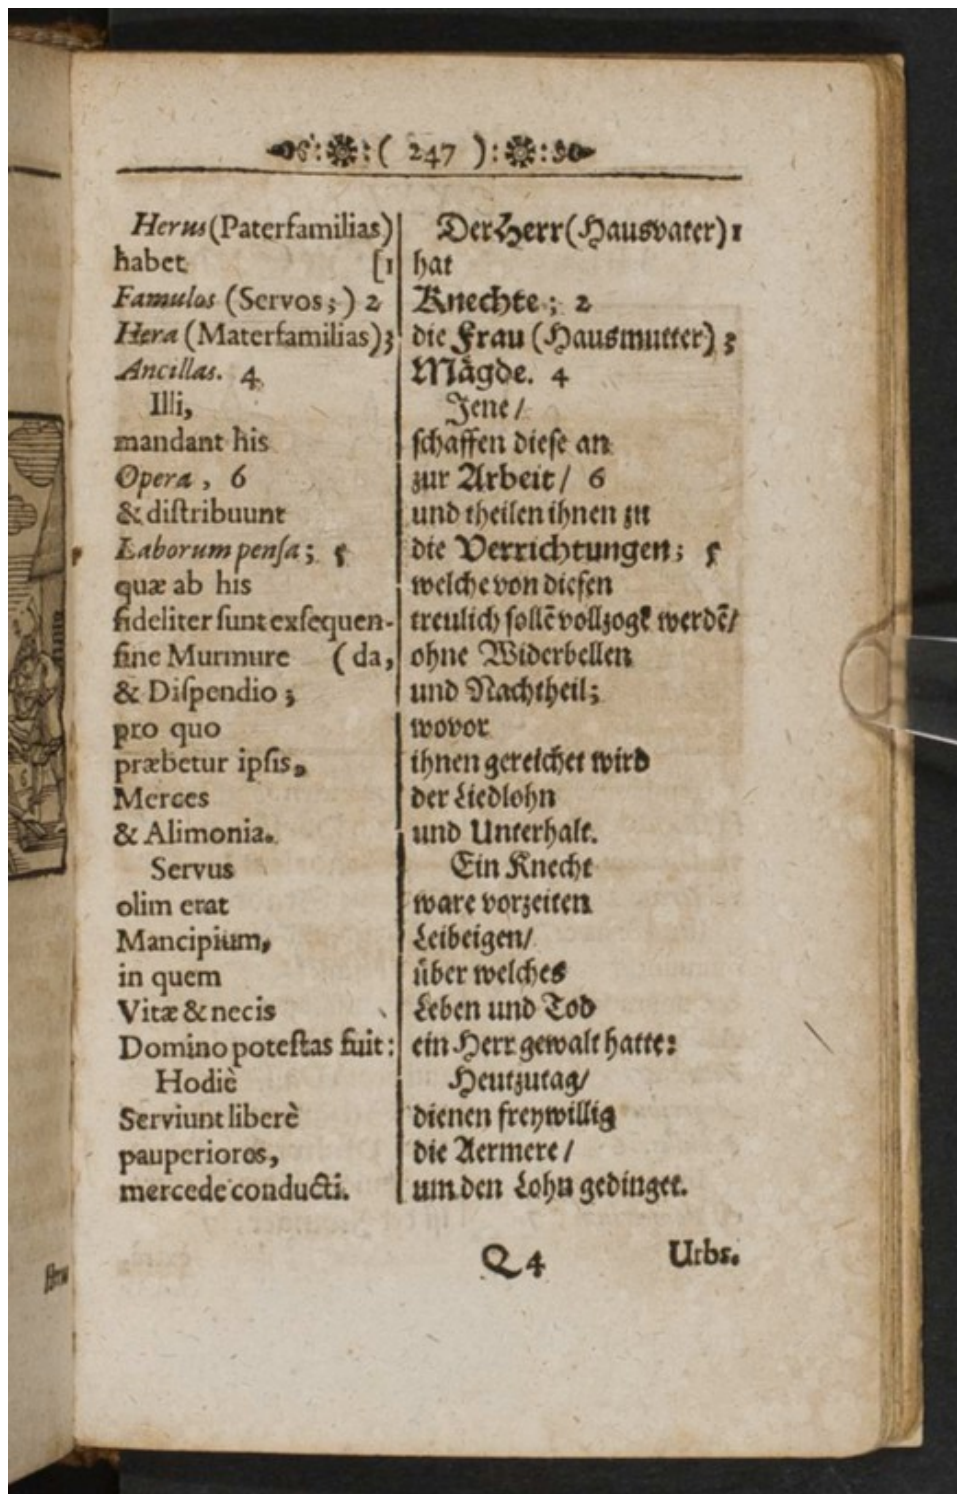 ( 247 )
Herus (Paterfamilias)
habet [1
Famulos (Servos;) 2
Hera (Materfamilias) 3
Ancillas. 4
Illi,
mandant his
Opera, 6
& distribuunt
Laborum pensa; 5
quæ ab his
fideliter sunt exsequen-
sine Murmure (da,
& Dispendio;
pro quo
præbetur ipsis,
Merces
& Alimonia.
Servus
olim erat
Mancipium,
in quem
Vitæ & necis
Domino potestas fuit:
Hodiè
Serviunt liberè
pauperiores,
mercede conducti.
Der Herr (Hausvater) 1
hat
Knechte; 2
die Frau (Hausmutter) 3
Mägde. 4
Jene /
schaffen diese an
zur Arbeit / 6
und theilen ihnen zu
die Verrichtungen; 5
welche von diesen
treulich sollē vollzogē werdē/
ohne Widerbellen
und Nachtheil;
wovor
ihnen gereichet wird
der Liedlohn
und Unterhalt.
Ein Knecht
ware vorzeiten
Leibeigen/
über welches
Leben und Tod
ein Herr gewalt hatte:
Heutzutag/
dienen freywillig
die Aermere /
um den Lohn gedinget.
Q 4 Urbs.